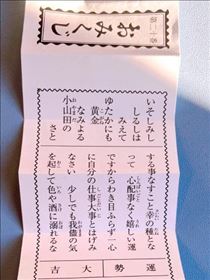 第二十番
おみくじ
いそしみし
しるしは
みえて
ゆたかにも
黄金
なみよる
小山田の
さと
運勢
大吉
する事なすこと幸の種とな
って心配事なく嬉しい運
ですからわき目ふらず一心
に自分の仕事大事とはげみ
なさい 少しでも我儘の気
を起して色や酒に溺れるな